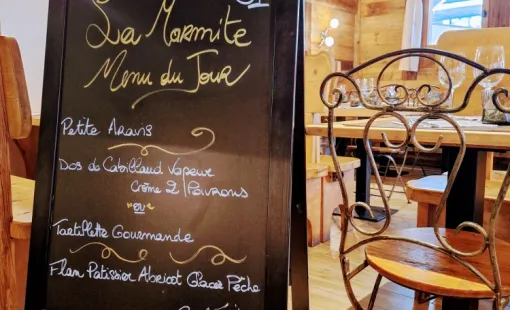 La Marmite
Menu du Jour
Petite Aravis
Dos de Cabillaud Vapeur
Crème 2 Poivrons
ou
Tartiflette Gourmande
Flan Patissier Abricot Glace Pêche